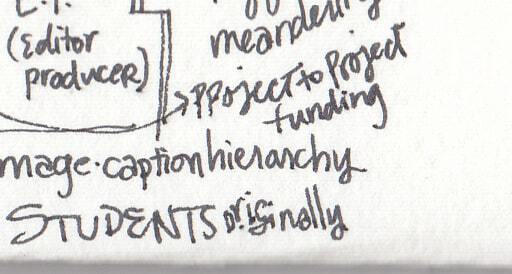 (Editor
producer)
meandering
project to project
funding
mage·caption hierarchy
STUDENTS originally